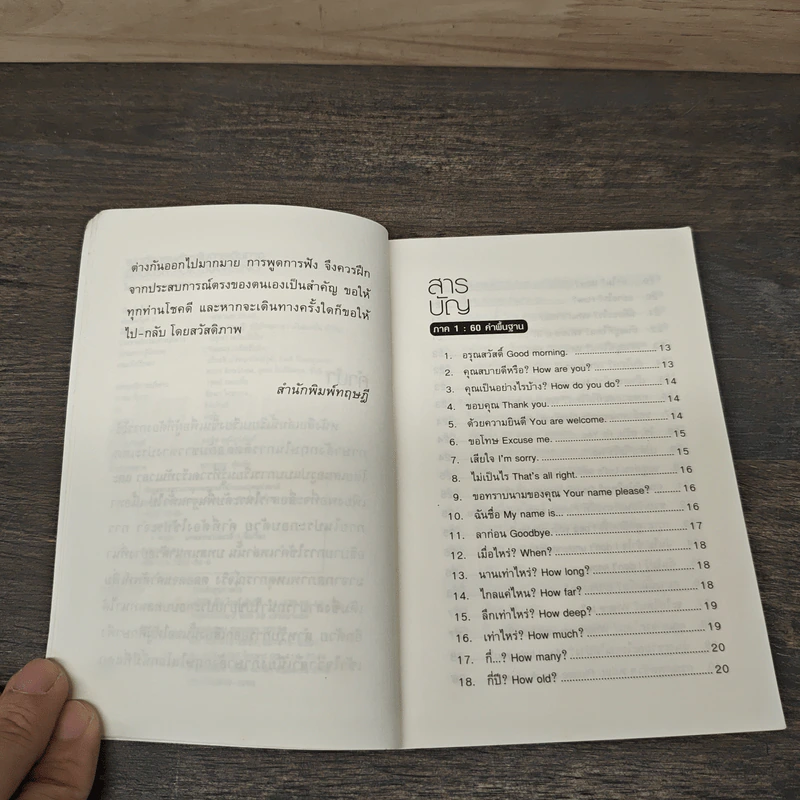 ต่างกันออกไปมากมาย การพูดการฟัง จึงควรฝึก
จากประสบการณ์ตรงของตนเองเป็นสำคัญ ขอให้
ทุกท่านโชคดี และหากจะเดินทางครั้งใดก็ขอให้
ไป-กลับ โดยสวัสดิภาพ
สำนักพิมพ์ทฤษฎี
สาร
บัญ
ภาค 1 : 60 คำพื้นฐาน
1. อรุณสวัสดิ์ Good morning. ........................ 13
2. คุณสบายดีหรือ? How are you? ........................ 13
3. คุณเป็นอย่างไรบ้าง? How do you do? ........................ 14
4. ขอบคุณ Thank you. ........................ 14
5. ด้วยความยินดี You are welcome. ........................ 14
6. ขอโทษ Excuse me. ........................ 15
7. เสียใจ I'm sorry. ........................ 15
8. ไม่เป็นไร That's all right. ........................ 16
9. ขอทราบนามของคุณ Your name please? ........................ 16
10. ฉันชื่อ My name is... ........................ 16
11. ลาก่อน Goodbye. ........................ 17
12. เมื่อไหร่? When? ........................ 18
13. นานเท่าไหร่? How long? ........................ 18
14. ไกลแค่ไหน? How far? ........................ 18
15. ลึกเท่าไหร่? How deep? ........................ 19
16. เท่าไหร่? How much? ........................ 19
17. กี่...? How many? ........................ 20
18. กี่ปี? How old? ........................ 20